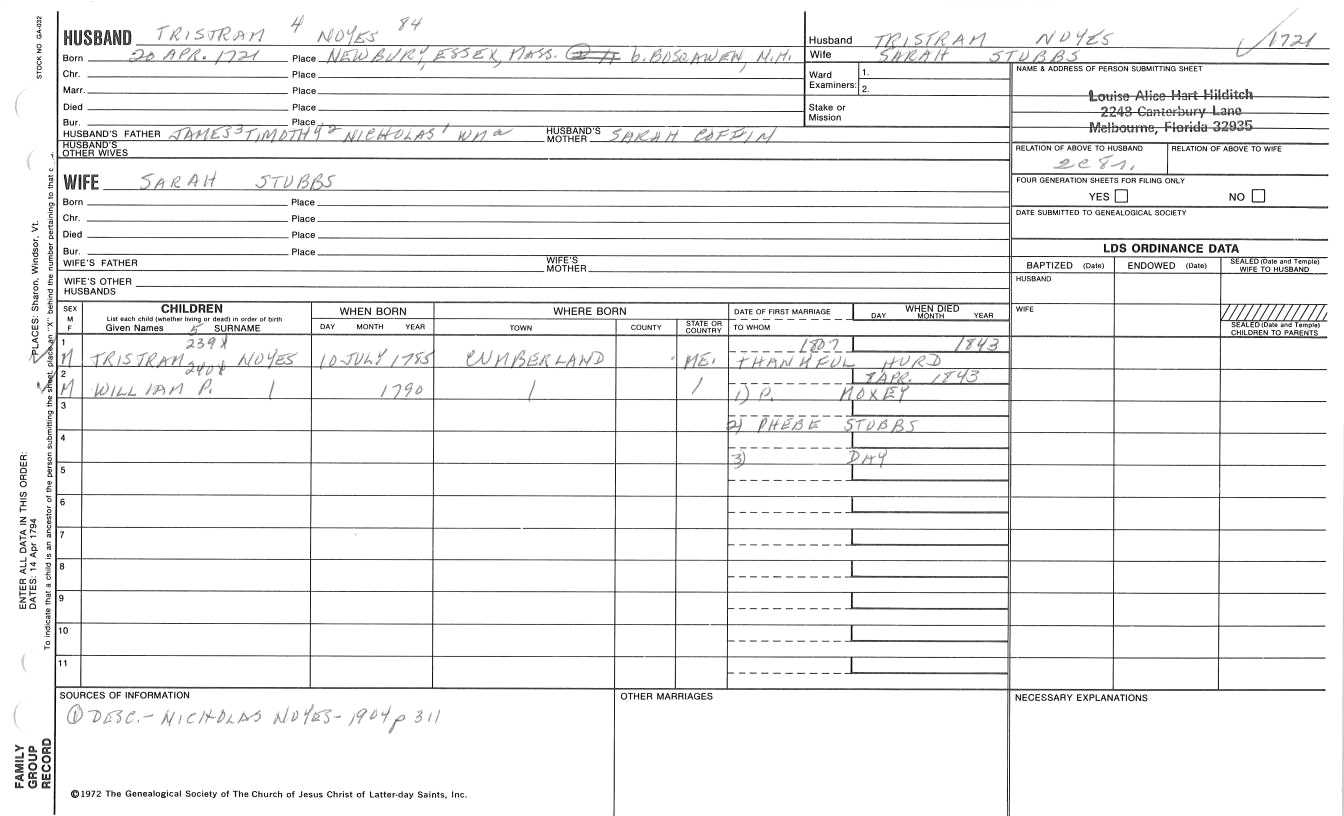 STOCK NO GA-032
HUSBAND TRISTRAM 4 NOYES 84
Born 20 APR. 1721 Place NEWBURY, ESSEX, MASS. b. BOSCAWEN, N.H.
Chr. Place
Marr. Place
Died Place
Bur. Place
HUSBAND'S FATHER JAMES3 TIMOTHY2 NICHOLAS1 WMa HUSBAND'S MOTHER SARAH COFFIN
HUSBAND'S OTHER WIVES
WIFE SARAH STUBBS
Born Place
Chr. Place
Died Place
Bur. Place
WIFE'S FATHER WIFE'S MOTHER
WIFE'S OTHER HUSBANDS
Husband TRISTRAM NOYES 1721
Wife SARAH STUBBS
Ward Examiners: 1.
2.
Stake or Mission
NAME & ADDRESS OF PERSON SUBMITTING SHEET
Louise Alice Hart Hilditch
2243 Canterbury Lane
Melbourne, Florida 32935
RELATION OF ABOVE TO HUSBAND RELATION OF ABOVE TO WIFE
2C 8r.
FOUR GENERATION SHEETS FOR FILING ONLY
YES NO
DATE SUBMITTED TO GENEALOGICAL SOCIETY
LDS ORDINANCE DATA
BAPTIZED (Date) ENDOWED (Date) SEALED (Date and Temple) WIFE TO HUSBAND
HUSBAND
WIFE
SEALED (Date and Temple) CHILDREN TO PARENTS
SEX M F
CHILDREN
List each child (whether living or dead) in order of birth
Given Names 5 SURNAME
WHEN BORN
DAY MONTH YEAR
WHERE BORN
TOWN COUNTY STATE OR COUNTRY
DATE OF FIRST MARRIAGE
TO WHOM
WHEN DIED
DAY MONTH YEAR
1 239X 1807 1843
M TRISTRAM NOYES 10 JULY 1785 CUMBERLAND ME. THANKFUL HURD
2 240X 8 APR. 1843
M WILLIAM P. 1790 1) P. NOXEY
3
2) PHEBE STUBBS
4
3) DAY
5
6
7
8
9
10
11
SOURCES OF INFORMATION
① DESC.- NICHOLAS NOYES- 1904 p 311
OTHER MARRIAGES
NECESSARY EXPLANATIONS
©1972 The Genealogical Society of The Church of Jesus Christ of Latter-day Saints, Inc.
FAMILY GROUP RECORD
ENTER ALL DATA IN THIS ORDER:
DATES: 14 Apr 1794
PLACES: Sharon, Windsor, Vt.
To indicate that a child is an ancestor of the person submitting the sheet, place an "X" behind the number pertaining to that c